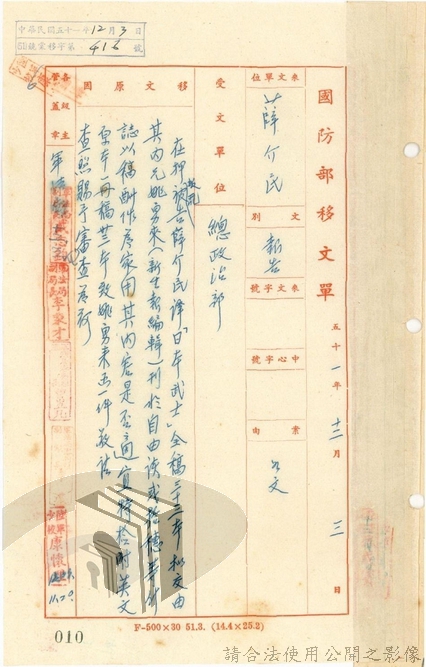 中華民國五十一年12月3日
416號
國防部移文單
五十一年十二月三日
來文單位
薛介民
文別
報告
來文字號
中心字號
案由
如文
受文單位
總政治部
移文原因
在押被告薛介民譯「日本武士」全稿三十三本擬交由
其內兄姚勇來(新生報編輯)刊於自由談或
誌以稿酬作為家用其內容是否適宜特檢附英文
原本一冊稿卅三本致姚勇來函一件敬請
查照賜予審查為荷
各級主管蓋章
康懷
010
F-500×30 51.3. (14.4×25.2)
請合法使用公開之影像